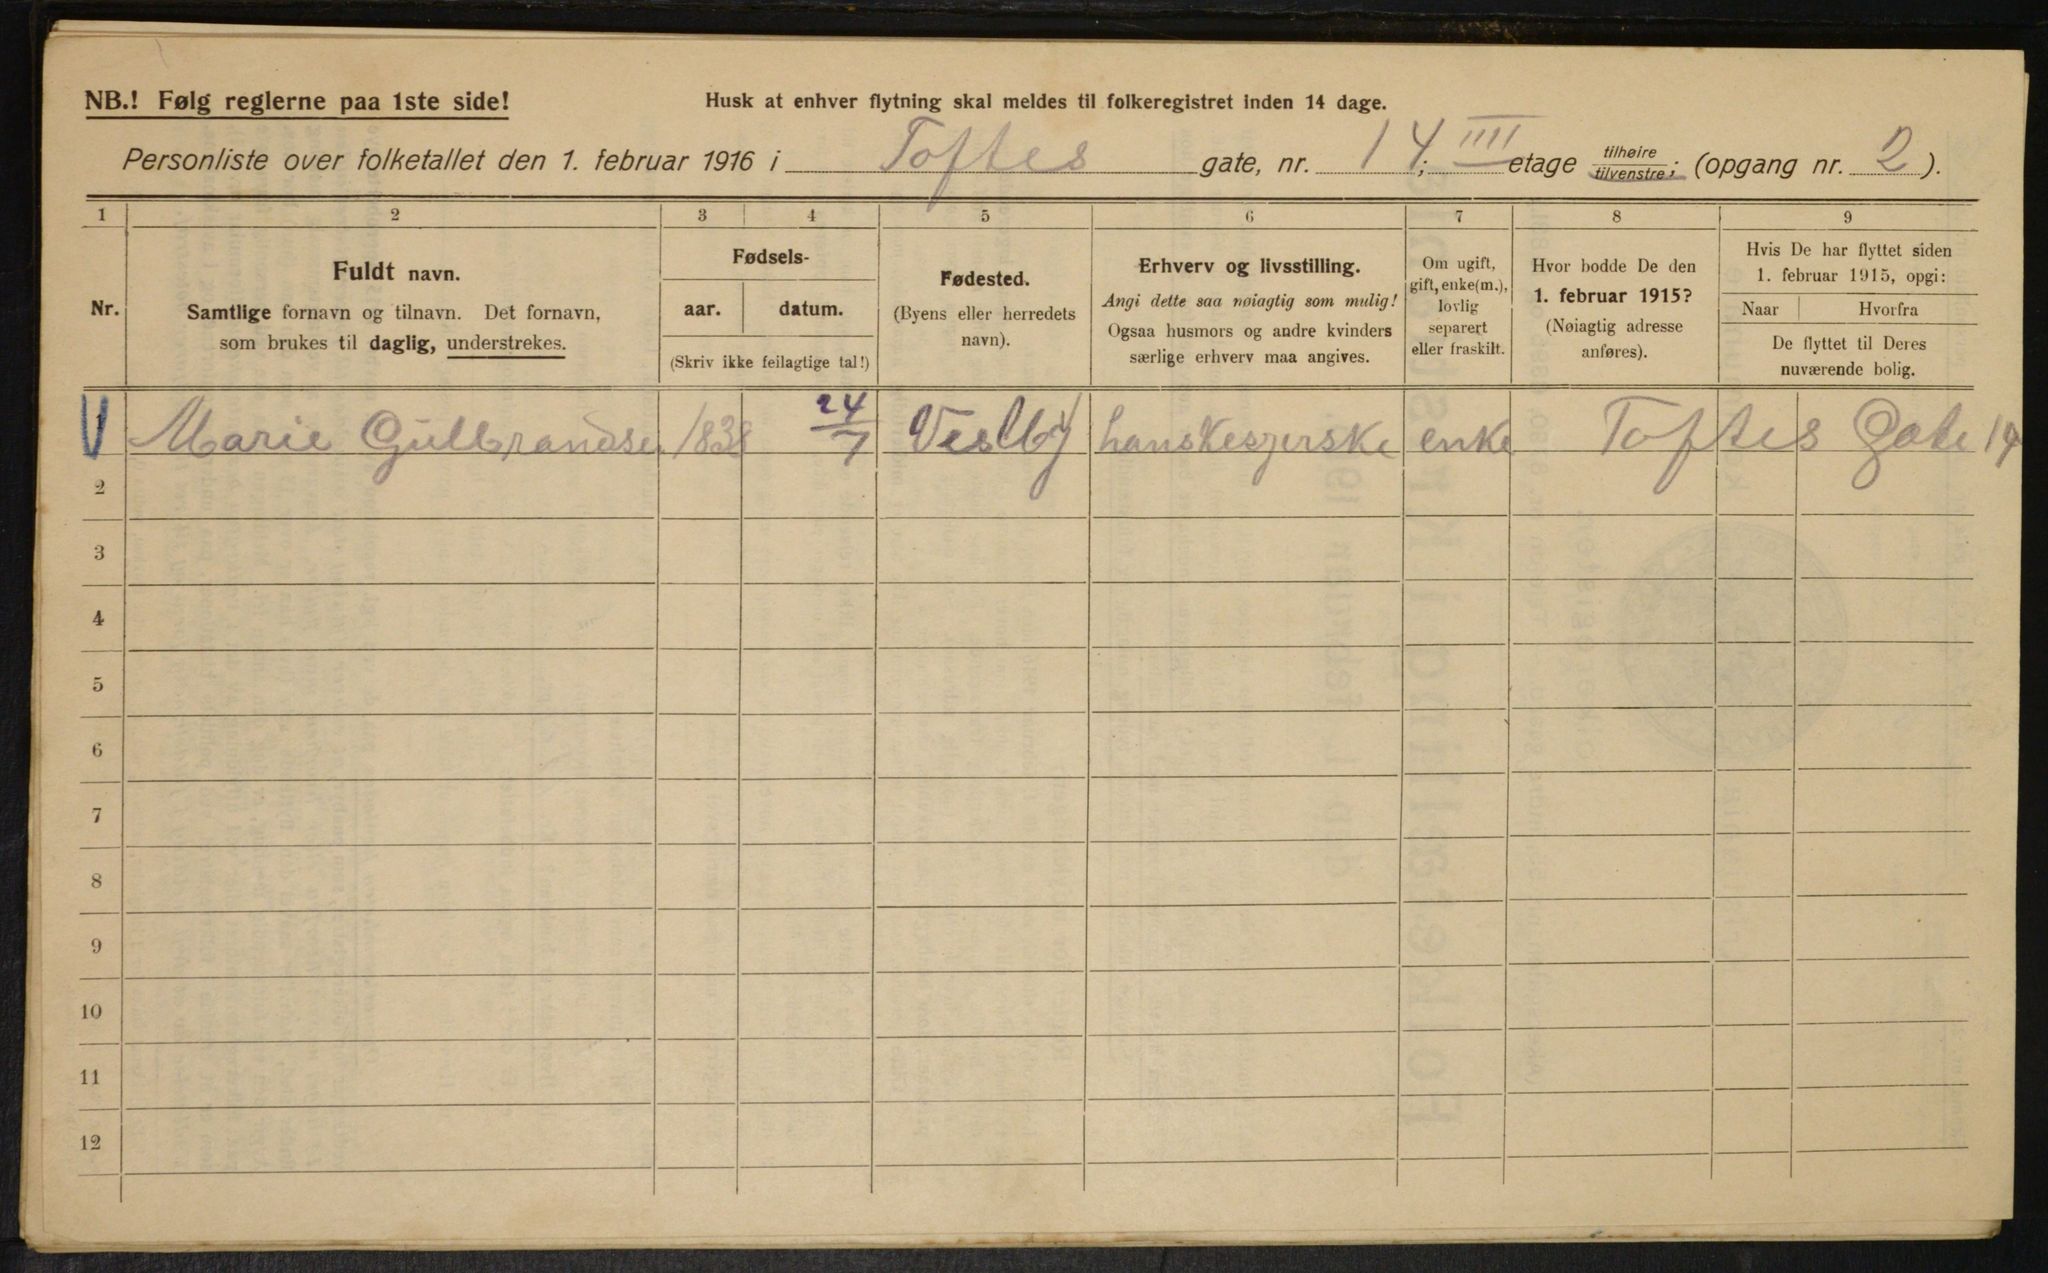 NB.! Følg reglerne paa 1ste side!
Husk at enhver flytning skal meldes til folkeregistret inden 14 dage.
Personliste over folketallet den 1. februar 1916 i Toftes gate, nr. 14; IIII etage tilhøire tilvenstre; (opgang nr. 2).
1 2 3 4 5 6 7 8 9
Nr.
Fuldt navn.
Samtlige fornavn og tilnavn. Det fornavn,
som brukes til daglig, understrekes.
Fødsels-
aar. datum.
(Skriv ikke feilagtige tal!)
Fødested.
(Byens eller herredets
navn).
Erhverv og livsstilling.
Angi dette saa nøiagtig som mulig!
Ogsaa husmors og andre kvinders
særlige erhverv maa angives.
Om ugift,
gift, enke(m.),
lovlig
separert
eller fraskilt.
Hvor bodde De den
1. februar 1915?
(Nøiagtig adresse
anføres).
Hvis De har flyttet siden
1. februar 1915, opgi:
Naar Hvorfra
De flyttet til Deres
nuværende bolig.
1 Marie Gulbrandsen 1838 24/7 Vestby hanskesyerske enke Toftes Gate 14
2
3
4
5
6
7
8
9
10
11
12